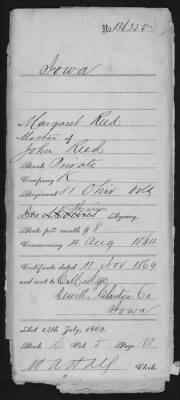 No. 136335
Iowa
Margaret Reed
Mother of
John Reed
Rank Private
Company K
Regiment 81 Ohio Vols
Des Moines Marion Agency,
Rate per month $8
Commencing 4 Aug 1864
Certificate dated 11 Nov 1869
and sent to
Clinton Co
Iowa
Act 14th July, 1862.
Book C Vol. 5 Page
Clerk.